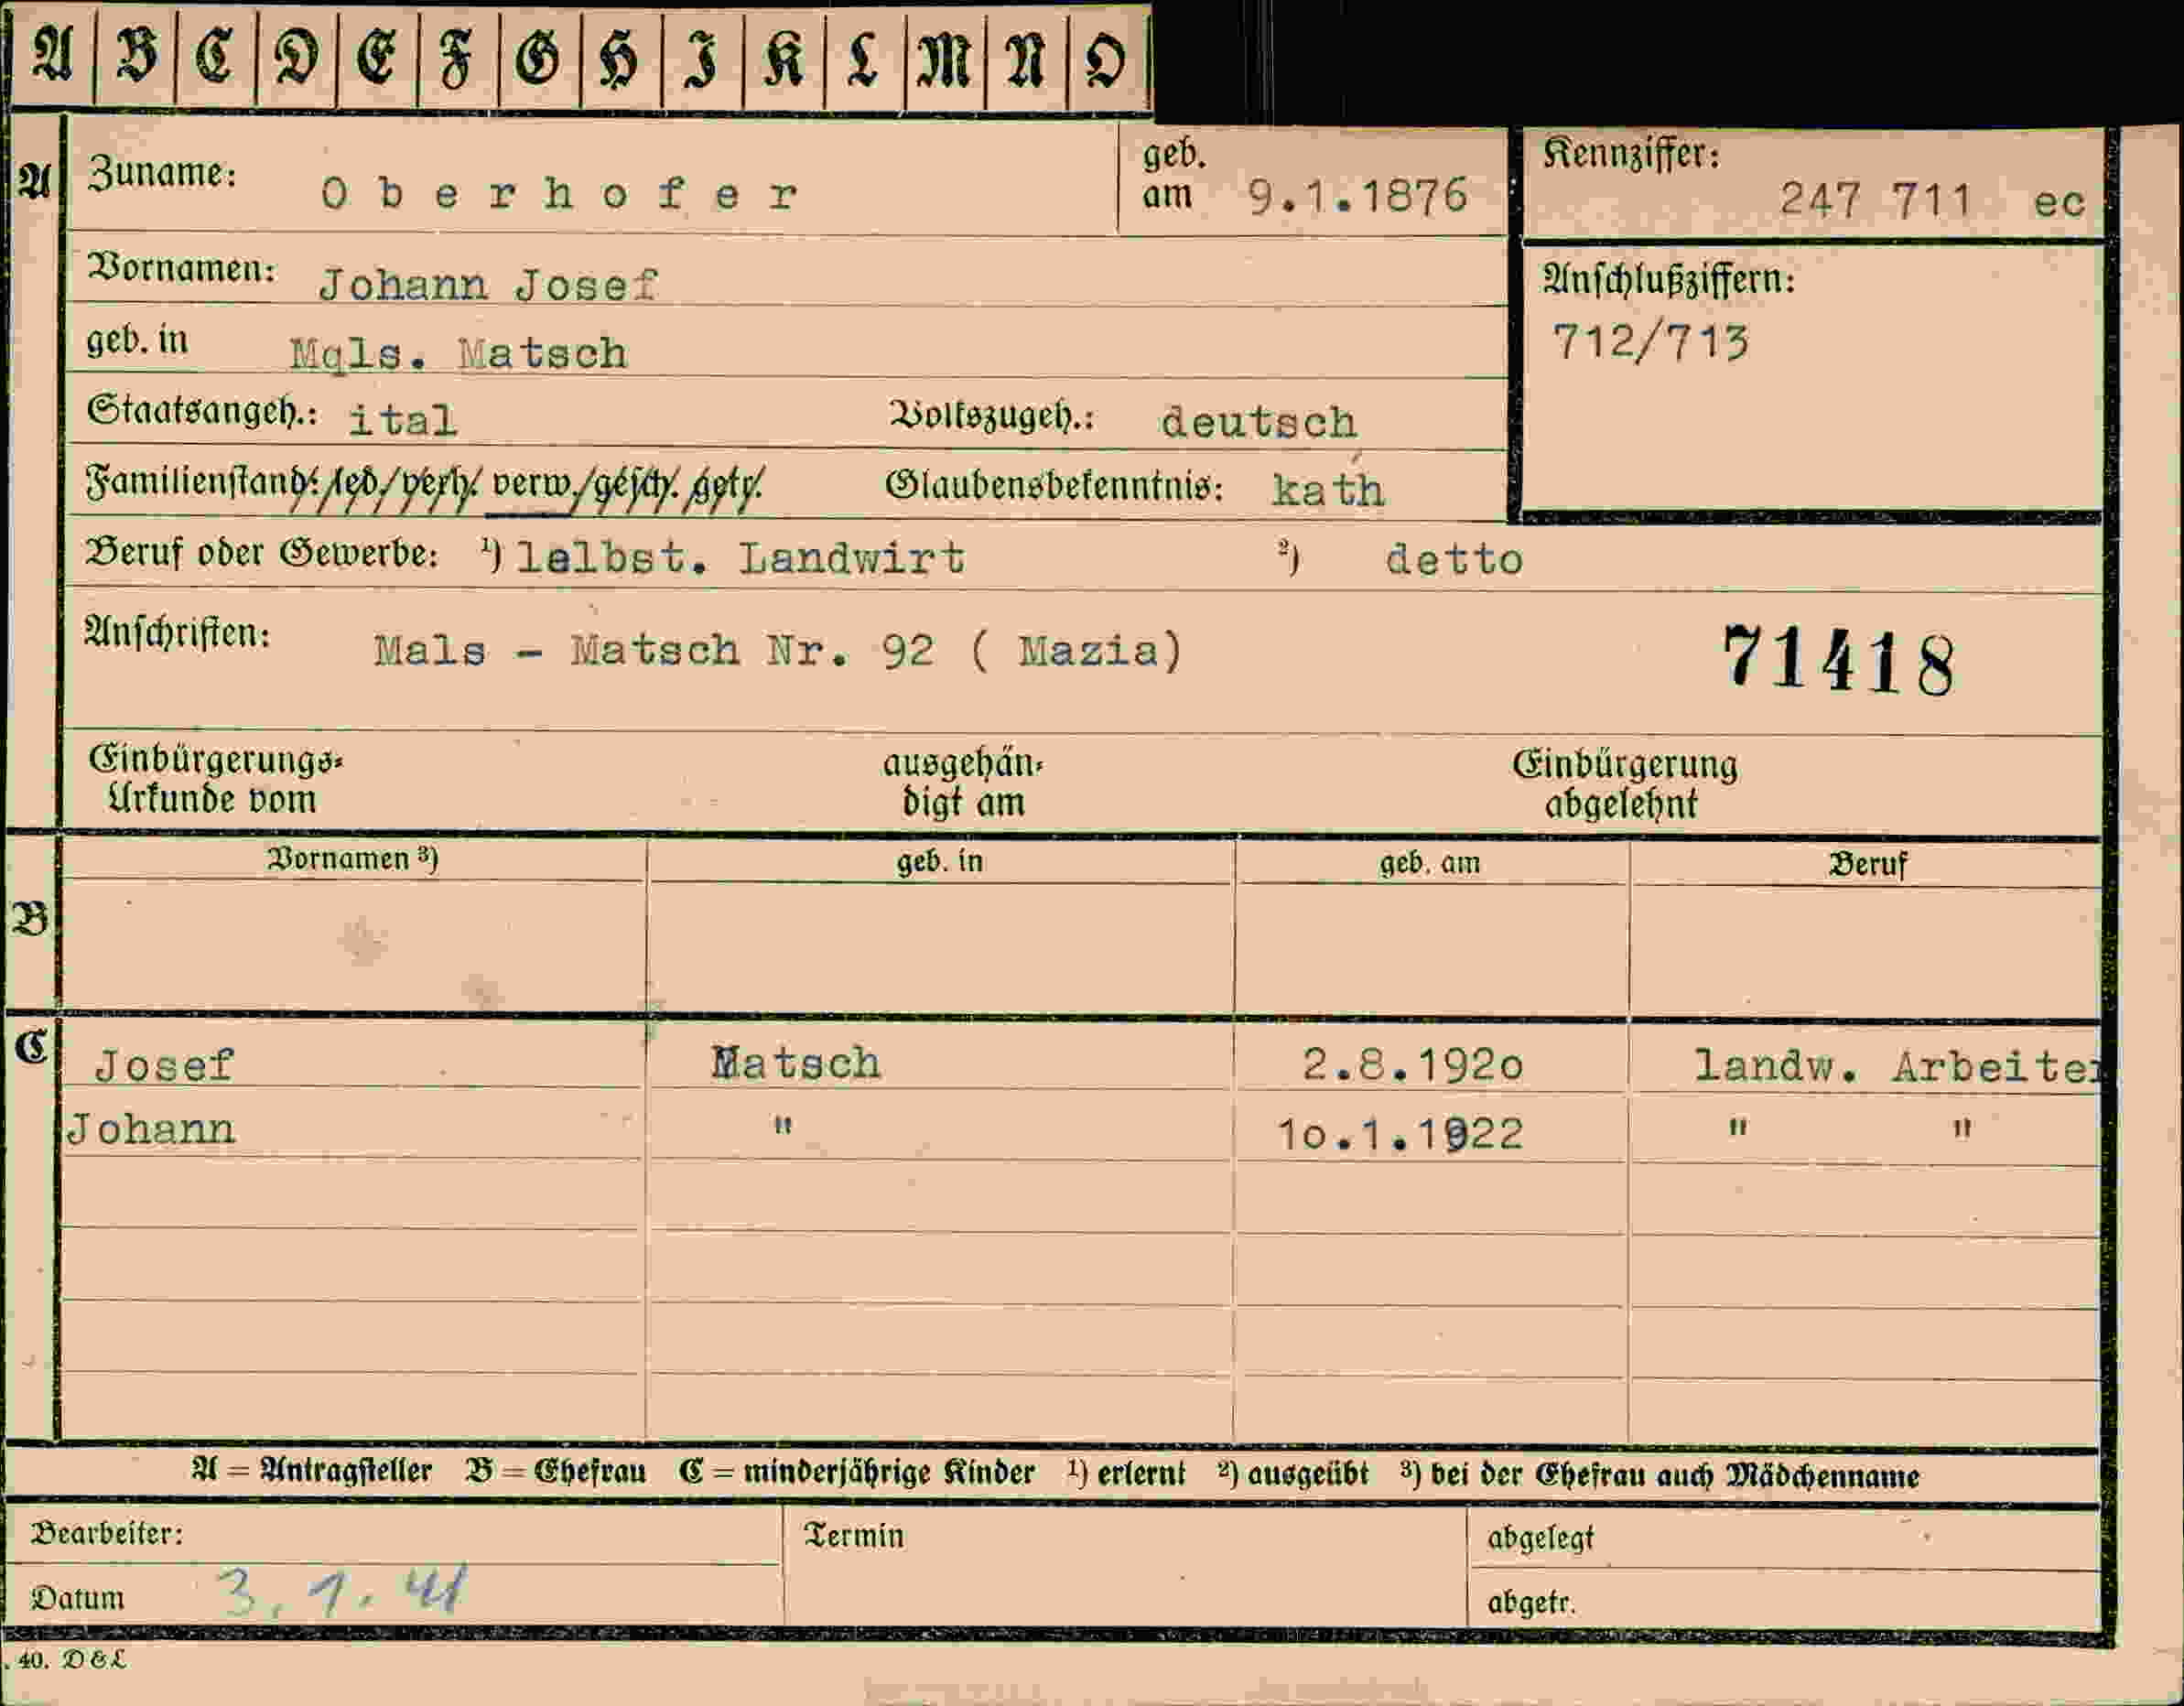 A B C D E F G H I K L M N O
A Zuname: Oberhofer geb. am 9.1.1876 Kennziffer: 247 711 ec
Vornamen: Johann Josef
Anschlußziffern:
geb. in Mqls. Matsch
712/713
Staatsangeh.: ital Volkszugeh.: deutsch
Familienstand: led/verh. verw./gesch. getr. Glaubensbekenntnis: kath
Beruf oder Gewerbe: ¹) lelbst. Landwirt ²) detto
Anschriften: Mals - Matsch Nr. 92 ( Mazia) 71418
Einbürgerungs- ausgehän- Einbürgerung
Urkunde vom digt am abgelehnt
Vornamen ³) geb. in geb. am Beruf
B
C Josef Matsch 2.8.192o landw. Arbeiter
Johann " 1o.1.1922 " "
A = Antragsteller B = Ehefrau C = minderjährige Kinder ¹) erlernt ²) ausgeübt ³) bei der Ehefrau auch Mädchenname
Bearbeiter: Termin abgelegt
Datum 3.1.41 abgetr.
. 40. D & L